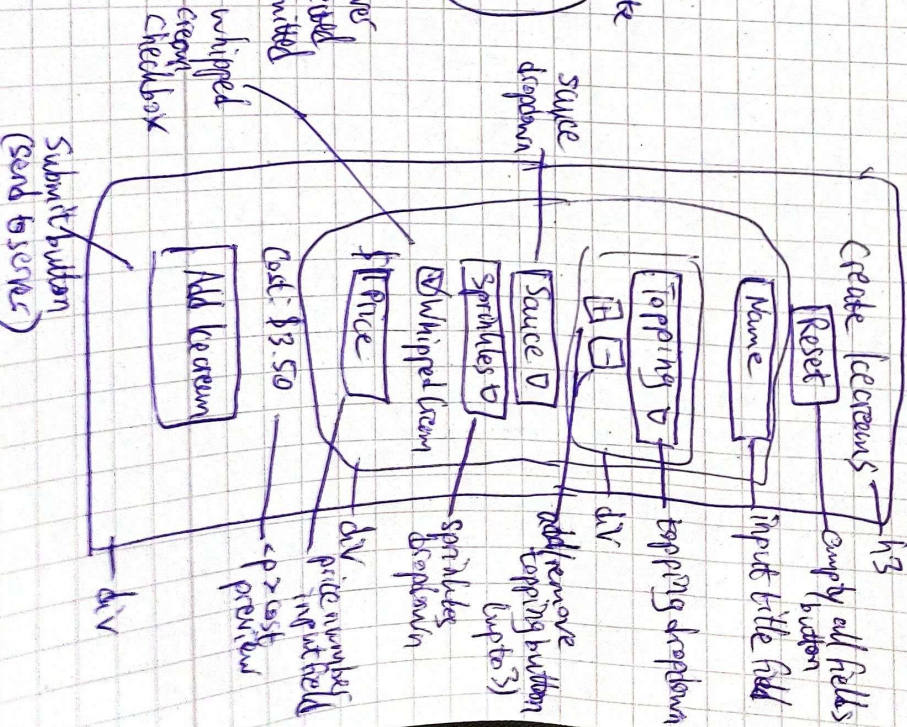 Create Icecreams
h3
Reset
empty all fields
button
Name
input title field
Topping
topping dropdown
+ -
div
add/remove
topping button
(up to 3)
sauce
dropdown
Sauce
Sprinkles
sprinkles
dropdown
Whipped Cream
whipped
cream
checkbox
$ Price
div
price number
input field
Cost: $3.50
<p> cost
preview
Add Icecream
Submit button
(send to server)
div